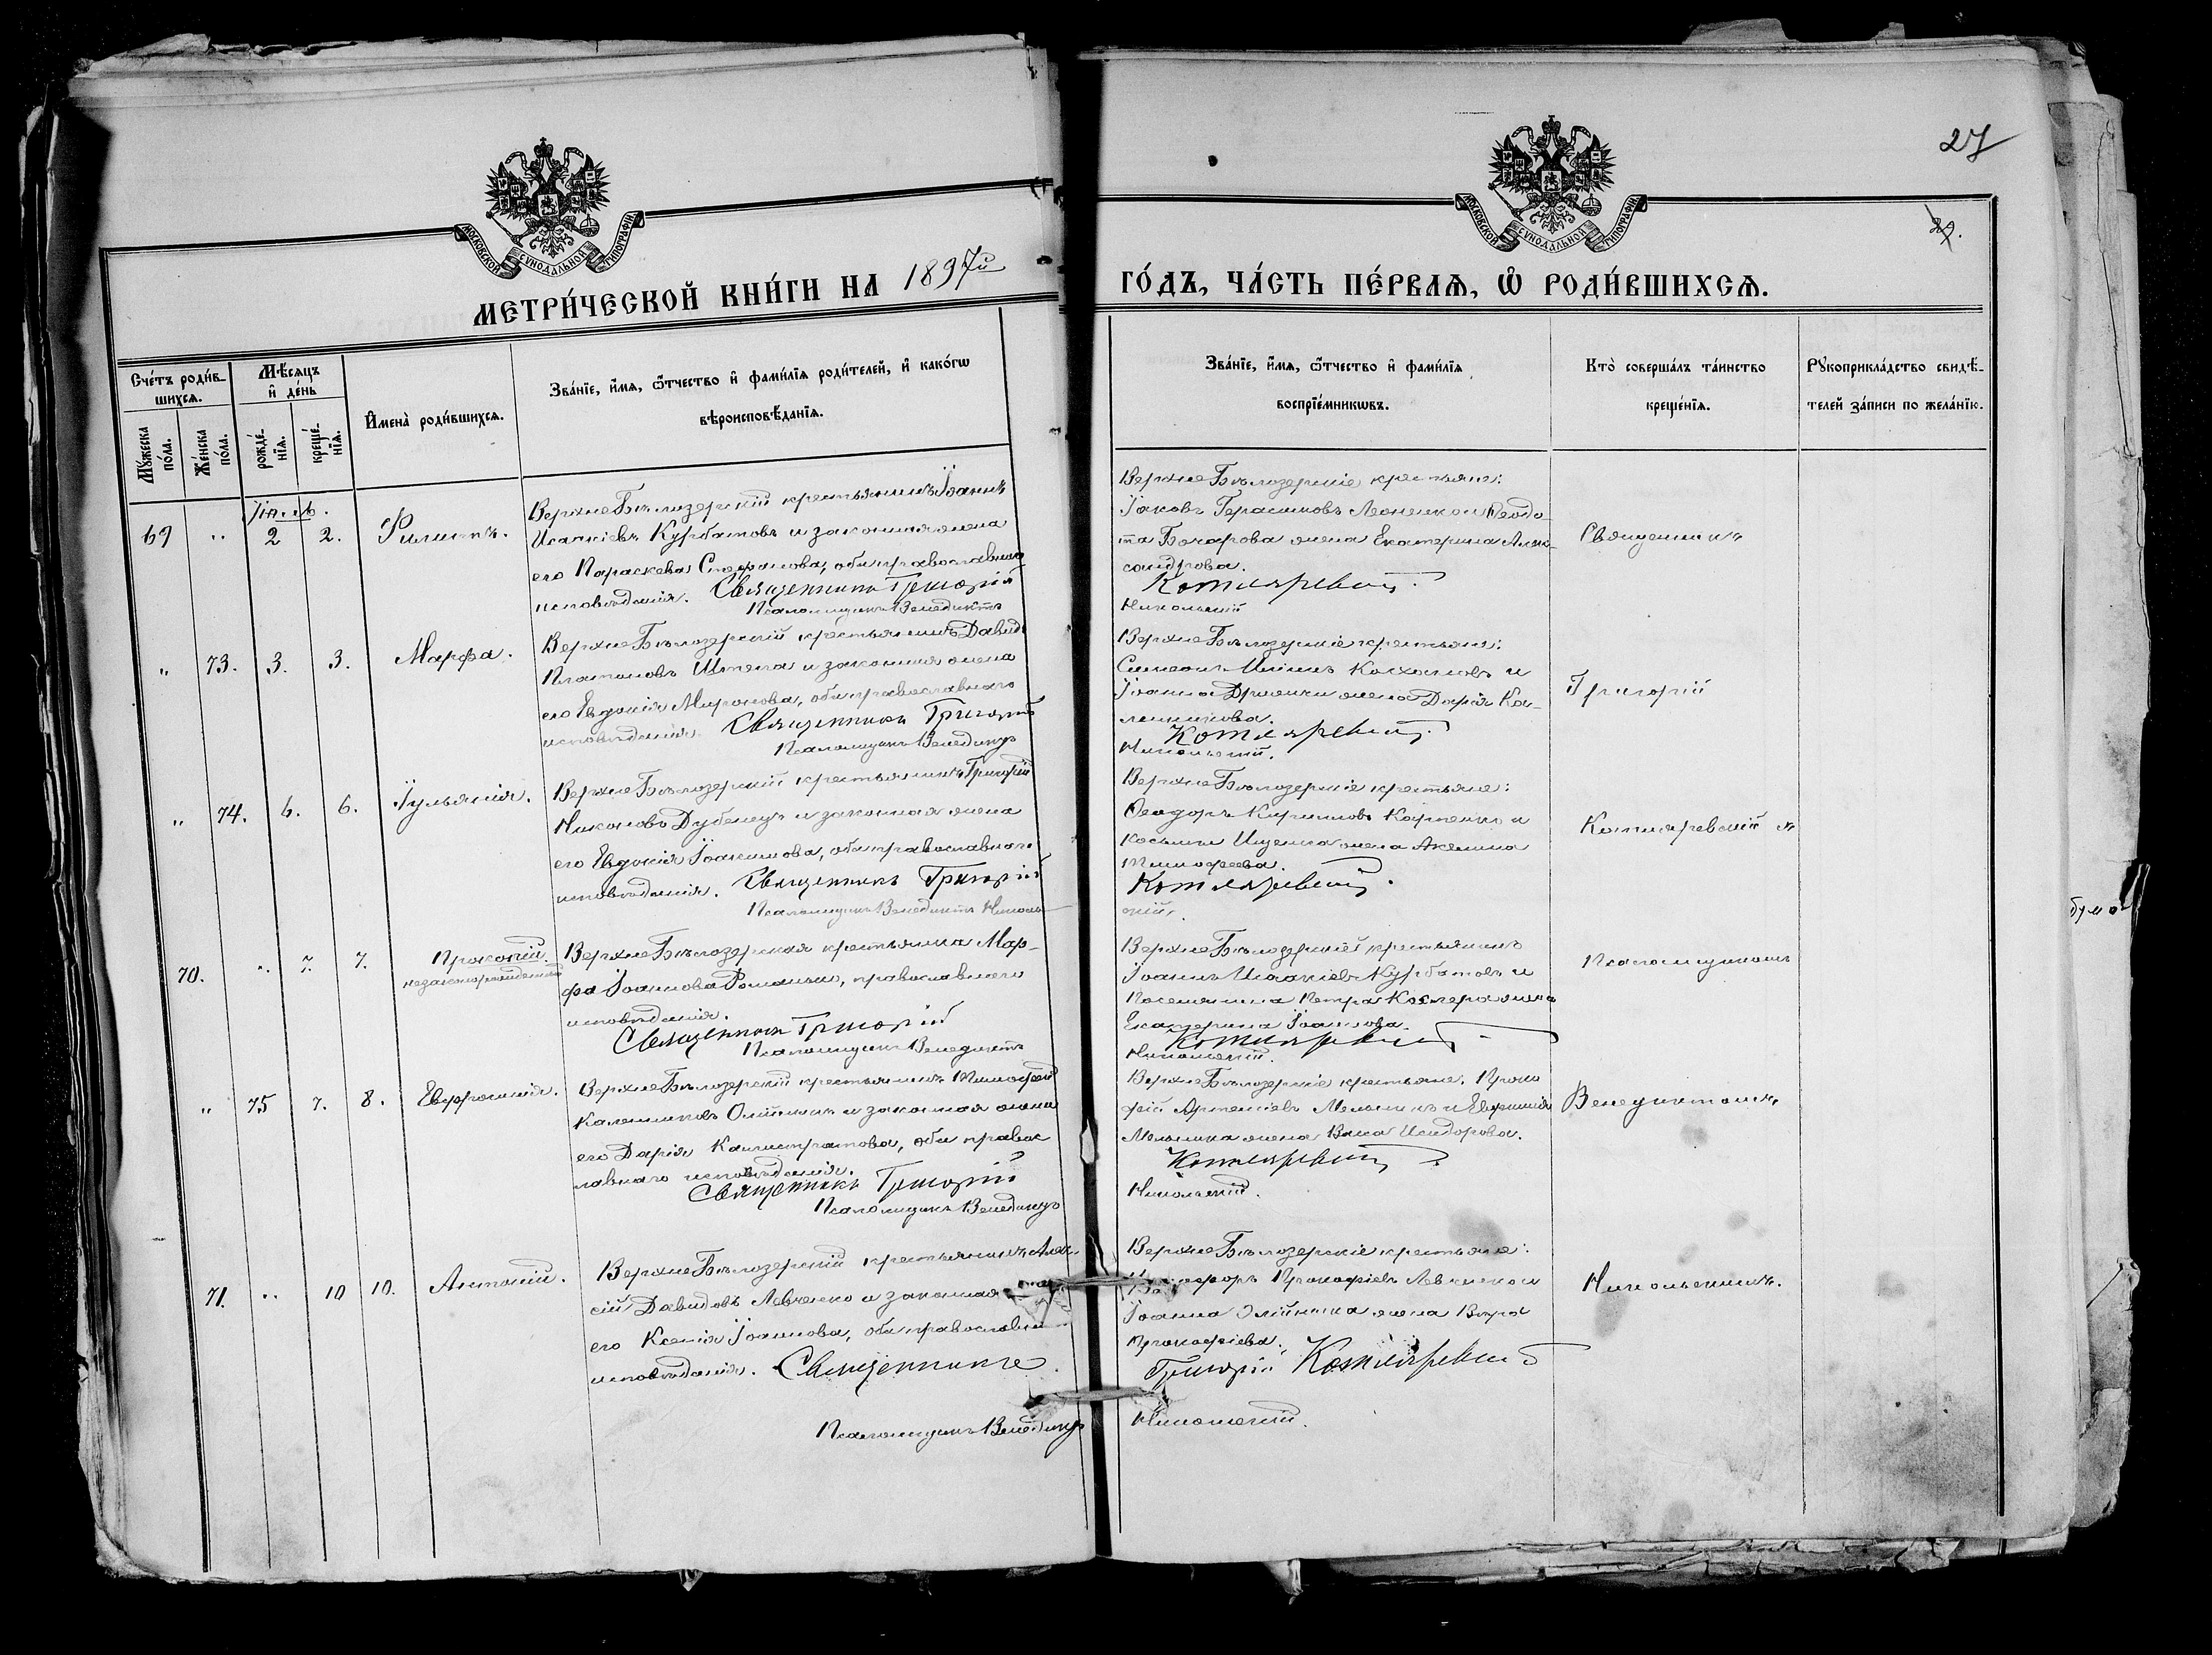 27
29.
МОСКОВСКОЙ СУНОДАЛЬНОЙ ТИПОГРАФІИ
МОСКОВСКОЙ СУНОДАЛЬНОЙ ТИПОГРАФІИ
МЕТРИ́ЧЕСКОЙ КНИ́ГИ НА 1897й
ГО́ДЪ, ЧА́СТЬ ПЕ́РВАѦ, Ѡ҆ РОДИ́ВШИХСѦ.
Сче́тъ роди́в-
шихсѧ.
Мꙋ́жеска
по́ла.
Же́нска
по́ла.
Мѣ́сѧцъ
и҆ де́нь
рожде́-
нїѧ.
креще́-
нїѧ.
И҆мена̀ роди́вшихсѧ.
Зва́нїе, и҆́мѧ, ѻ҆́тчество и҆ фами́лїѧ роди́телей, и҆ како́гѡ
вѣроисповѣ́данїѧ.
Зва́нїе, и҆́мѧ, ѻ҆́тчество и҆ фами́лїѧ
воспрїе́мникѡвъ.
Кто̀ соверша́лъ та́инство
креще́нїѧ.
Рꙋкоприкла́дство свидѣ́-
телей за́писи по жела́нїю.
Іюль.
69 " 2 2. Филиппъ.
Верхне Бѣлозерскій крестьянинъ Іоаннъ
Исаакіевъ Курбатовъ и законная жена
его Параскева Стефанова, оба православнаго
исповѣданія. Священникъ Григорій
Псаломщикъ Венедиктъ
Верхне Бѣлозерскіе крестьяне:
Іаковъ Герасимовъ
Бочарова жена Екатерина Алек-
сандрова.
Котляревскій.
Никольскій
Священник
" 73. 3. 3. Марфа.
Верхне Бѣлозерскій крестьянинъ Давид
Платоновъ Штепа и законная жена
его Евдокія Миронова, оба православнаго
исповѣданія. Священникъ Григорій
Псаломщикъ Венедиктъ
Верхне Бѣлозерскіе крестьяне:
Симеонъ и
Іоанна жена Дарія Ка-
линникова.
Котляревскій.
Никольскій.
Григорій
" 74. 6. 6. Іульянія.
Верхне Бѣлозерскій крестьянинъ Григорій
Никоновъ Дубенецъ и законная жена
его Евдокія Іоакимова, оба православнаго
исповѣданія. Священникъ Григорій
Псаломщикъ Венедиктъ Николь-
Верхне Бѣлозерскіе крестьяне:
Ѳеодоръ Кирилловъ Карпенко и
Косьмы Ищенка жена Акелина
Тимофеева.
Котляревскій.
скій.
Котляревскій
70. " 7. 7. Прокопій.
незаконорожденный
Верхне Бѣлозерская крестьянка Мар-
фа Іоаннова Романько, православнаго
исповѣданія.
Священникъ Григорій
Псаломщикъ Венедиктъ
Верхне Бѣлозерскій крестьянинъ
Іоаннъ Исаакіевъ Курбатовъ и
Поселянина Петра жена
Екатерина Іоаннова.
Котляревскій
Никольскій.
Псаломщикомъ
" 75 7. 8. Евфросинія.
Верхне Бѣлозерскій крестьянинъ Тимофей
Калинниковъ Олійникъ и законная жена
его Дарія Каллистратова, оба правос
лавнаго исповѣданія.
Священникъ Григорій
Псаломщикъ Венедиктъ
Верхне Бѣлозерскіе крестьяне. Проко
фій Артеміевъ Мельникъ и
Мельника жена Васса Исидорова.
Котляревскій
Никольскій.
Венедиктомъ
71. " 10 10. Антоній.
Верхне Бѣлозерскій крестьянинъ Алек-
сій Давидовъ Левченко и законная
его Ксенія Іоаннова, оба православн
исповѣданія. Священникъ
Псаломщикъ Венедиктъ
Верхне Бѣлозерскіе крестьяне:
Прокофіевъ Левченко и
Іоанна Олійника жена Вѣра
Прокофіева.
Григорій Котляревскій
Никольскій.
Никольскимъ.